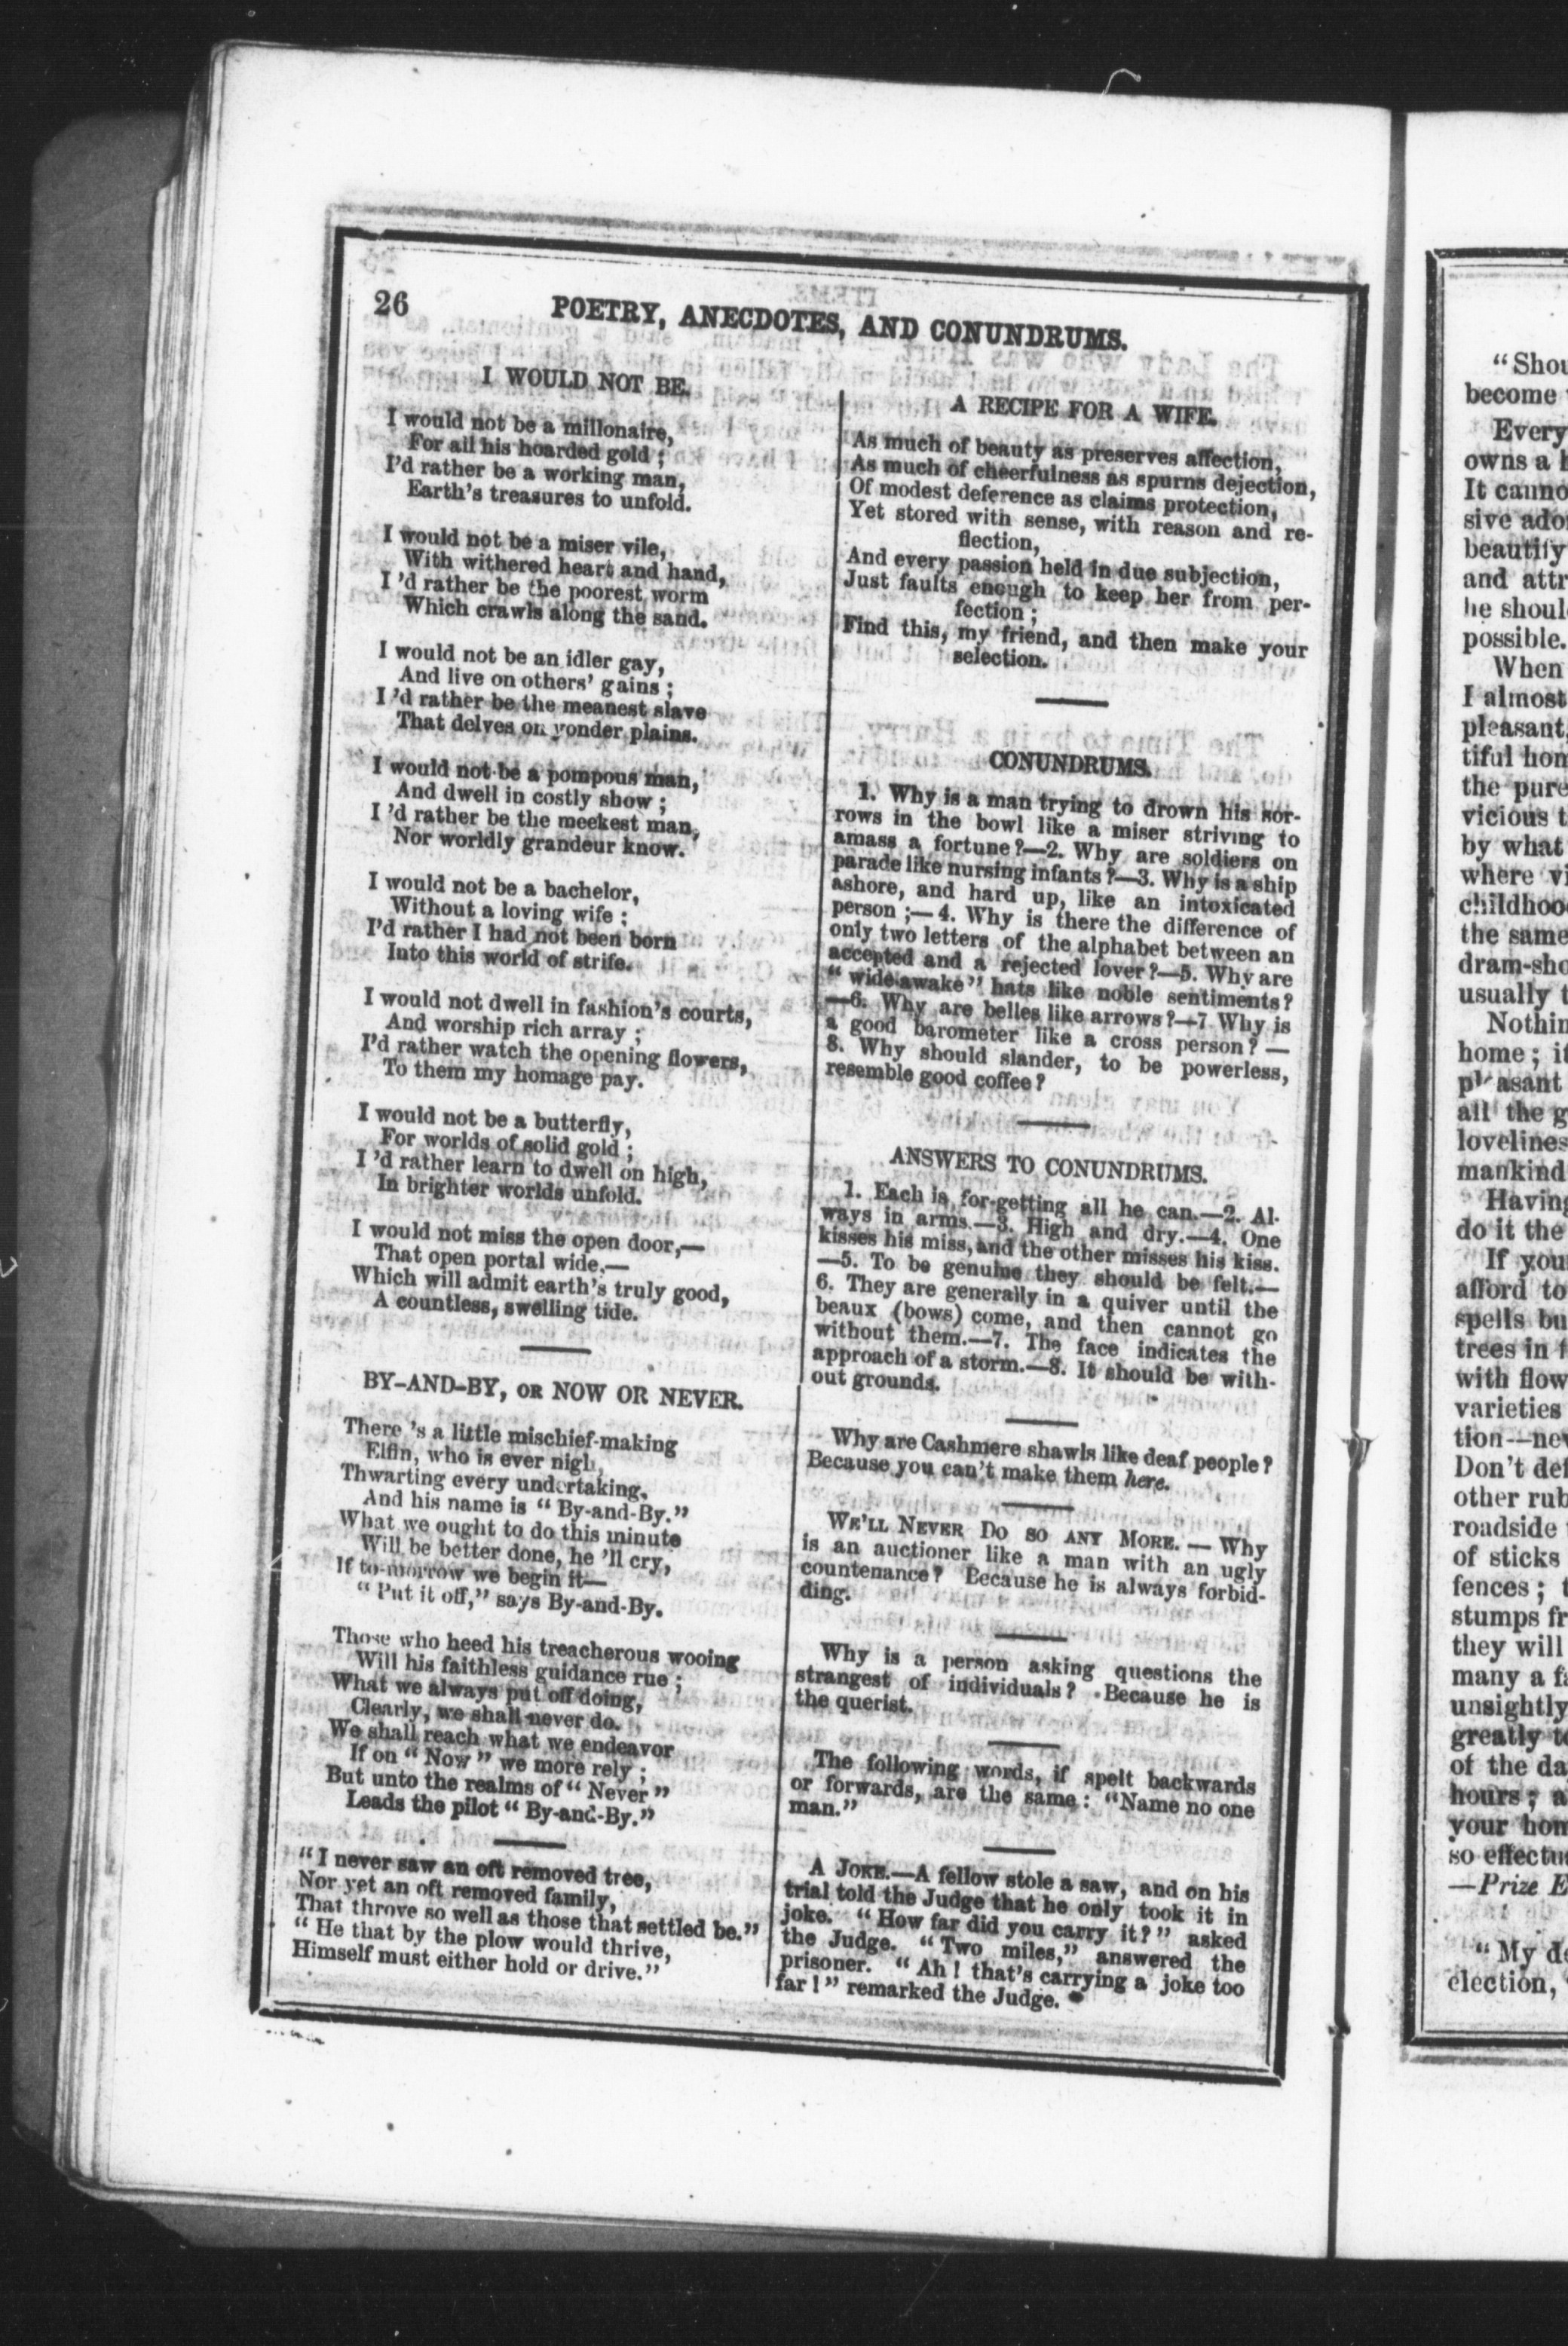 26
POETRY, ANECDOTES, AND CONUNDRUMS.
I WOULD NOT BE.
I would not be a millonaire,
For all his hoarded gold ;
I'd rather be a working man,
Earth's treasures to unfold.
I would not be a miser vile,
With withered heart and hand,
I 'd rather be the poorest worm
Which crawls along the sand.
I would not be an idler gay,
And live on others' gains ;
I 'd rather be the meanest slave
That delves on yonder plains.
I would not be a pompous man,
And dwell in costly show ;
I 'd rather be the meekest man,
Nor worldly grandeur know.
I would not be a bachelor,
Without a loving wife ;
I'd rather I had not been born
Into this world of strife.
I would not dwell in fashion's courts,
And worship rich array ;
I'd rather watch the opening flowers,
To them my homage pay.
I would not be a butterfly,
For worlds of solid gold ;
I 'd rather learn to dwell on high,
In brighter worlds unfold.
I would not miss the open door,—
That open portal wide,—
Which will admit earth's truly good,
A countless, swelling tide.
BY-AND-BY, OR NOW OR NEVER.
There 's a little mischief-making
Elfin, who is ever nigh,
Thwarting every undertaking,
And his name is “ By-and-By.”
What we ought to do this minute
Will be better done, he 'll cry,
If to-morrow we begin it—
“ Put it off,” says By-and-By.
Those who heed his treacherous wooing
Will his faithless guidance rue ;
What we always put off doing,
Clearly, we shall never do.
We shall reach what we endeavor
If on “ Now ” we more rely ;
But unto the realms of “ Never ”
Leads the pilot “ By-and-By.”
“ I never saw an oft removed tree,
Nor yet an oft removed family,
That throve so well as those that settled be.”
“ He that by the plow would thrive,
Himself must either hold or drive.”
A RECIPE FOR A WIFE.
As much of beauty as preserves affection,
As much of cheerfulness as spurns dejection,
Of modest deference as claims protection,
Yet stored with sense, with reason and re-
flection,
And every passion held in due subjection,
Just faults enough to keep her from per-
fection ;
Find this, my friend, and then make your
selection.
CONUNDRUMS.
1. Why is a man trying to drown his sor-
rows in the bowl like a miser striving to
amass a fortune ?—2. Why are soldiers on
parade like nursing infants ?—3. Why is a ship
ashore, and hard up, like an intoxicated
person ;— 4. Why is there the difference of
only two letters of the alphabet between an
accepted and a rejected lover ?—5. Why are
“ wide-awake ” hats like noble sentiments ?
—6. Why are belles like arrows ?—7 Why is
a good barometer like a cross person ? —
8. Why should slander, to be powerless,
resemble good coffee ?
ANSWERS TO CONUNDRUMS.
1. Each is for-getting all he can.—2. Al-
ways in arms.—3. High and dry.—4. One
kisses his miss, and the other misses his kiss.
—5. To be genuine they should be felt.—
6. They are generally in a quiver until the
beaux (bows) come, and then cannot go
without them.—7. The face indicates the
approach of a storm.—8. It should be with-
out grounds.
Why are Cashmere shawls like deaf people ?
Because you can't make them here.
WE'LL NEVER DO SO ANY MORE. — Why
is an auctioner like a man with an ugly
countenance ? Because he is always forbid-
ding.
Why is a person asking questions the
strangest of individuals ? Because he is
the querist.
The following words, if spelt backwards
or forwards, are the same : “Name no one
man.”
A JOKE.—A fellow stole a saw, and on his
trial told the Judge that he only took it in
joke. “ How far did you carry it ? ” asked
the Judge. “ Two miles,” answered the
prisoner. “ Ah ! that's carrying a joke too
far ! ” remarked the Judge.
“ Shou
become
Every
owns a
It canno
sive ado
beautify
and attr
he shoul
possible.
When
I almost
pleasant,
tiful hom
the pure
vicious t
by what
where vi
childhoo
the same
dram-sho
usually t
Nothin
home ; it
pleasant
all the g
lovelines
mankind
Having
do it the
If you
afford to
spells bu
trees in f
with flow
varieties
tion—nev
Don't def
other rub
roadside
of sticks
fences ; t
stumps fr
they will
many a fa
unsightly
greatly to
of the da
hours ; a
your hom
so effectu
—Prize E
“ My de
election,